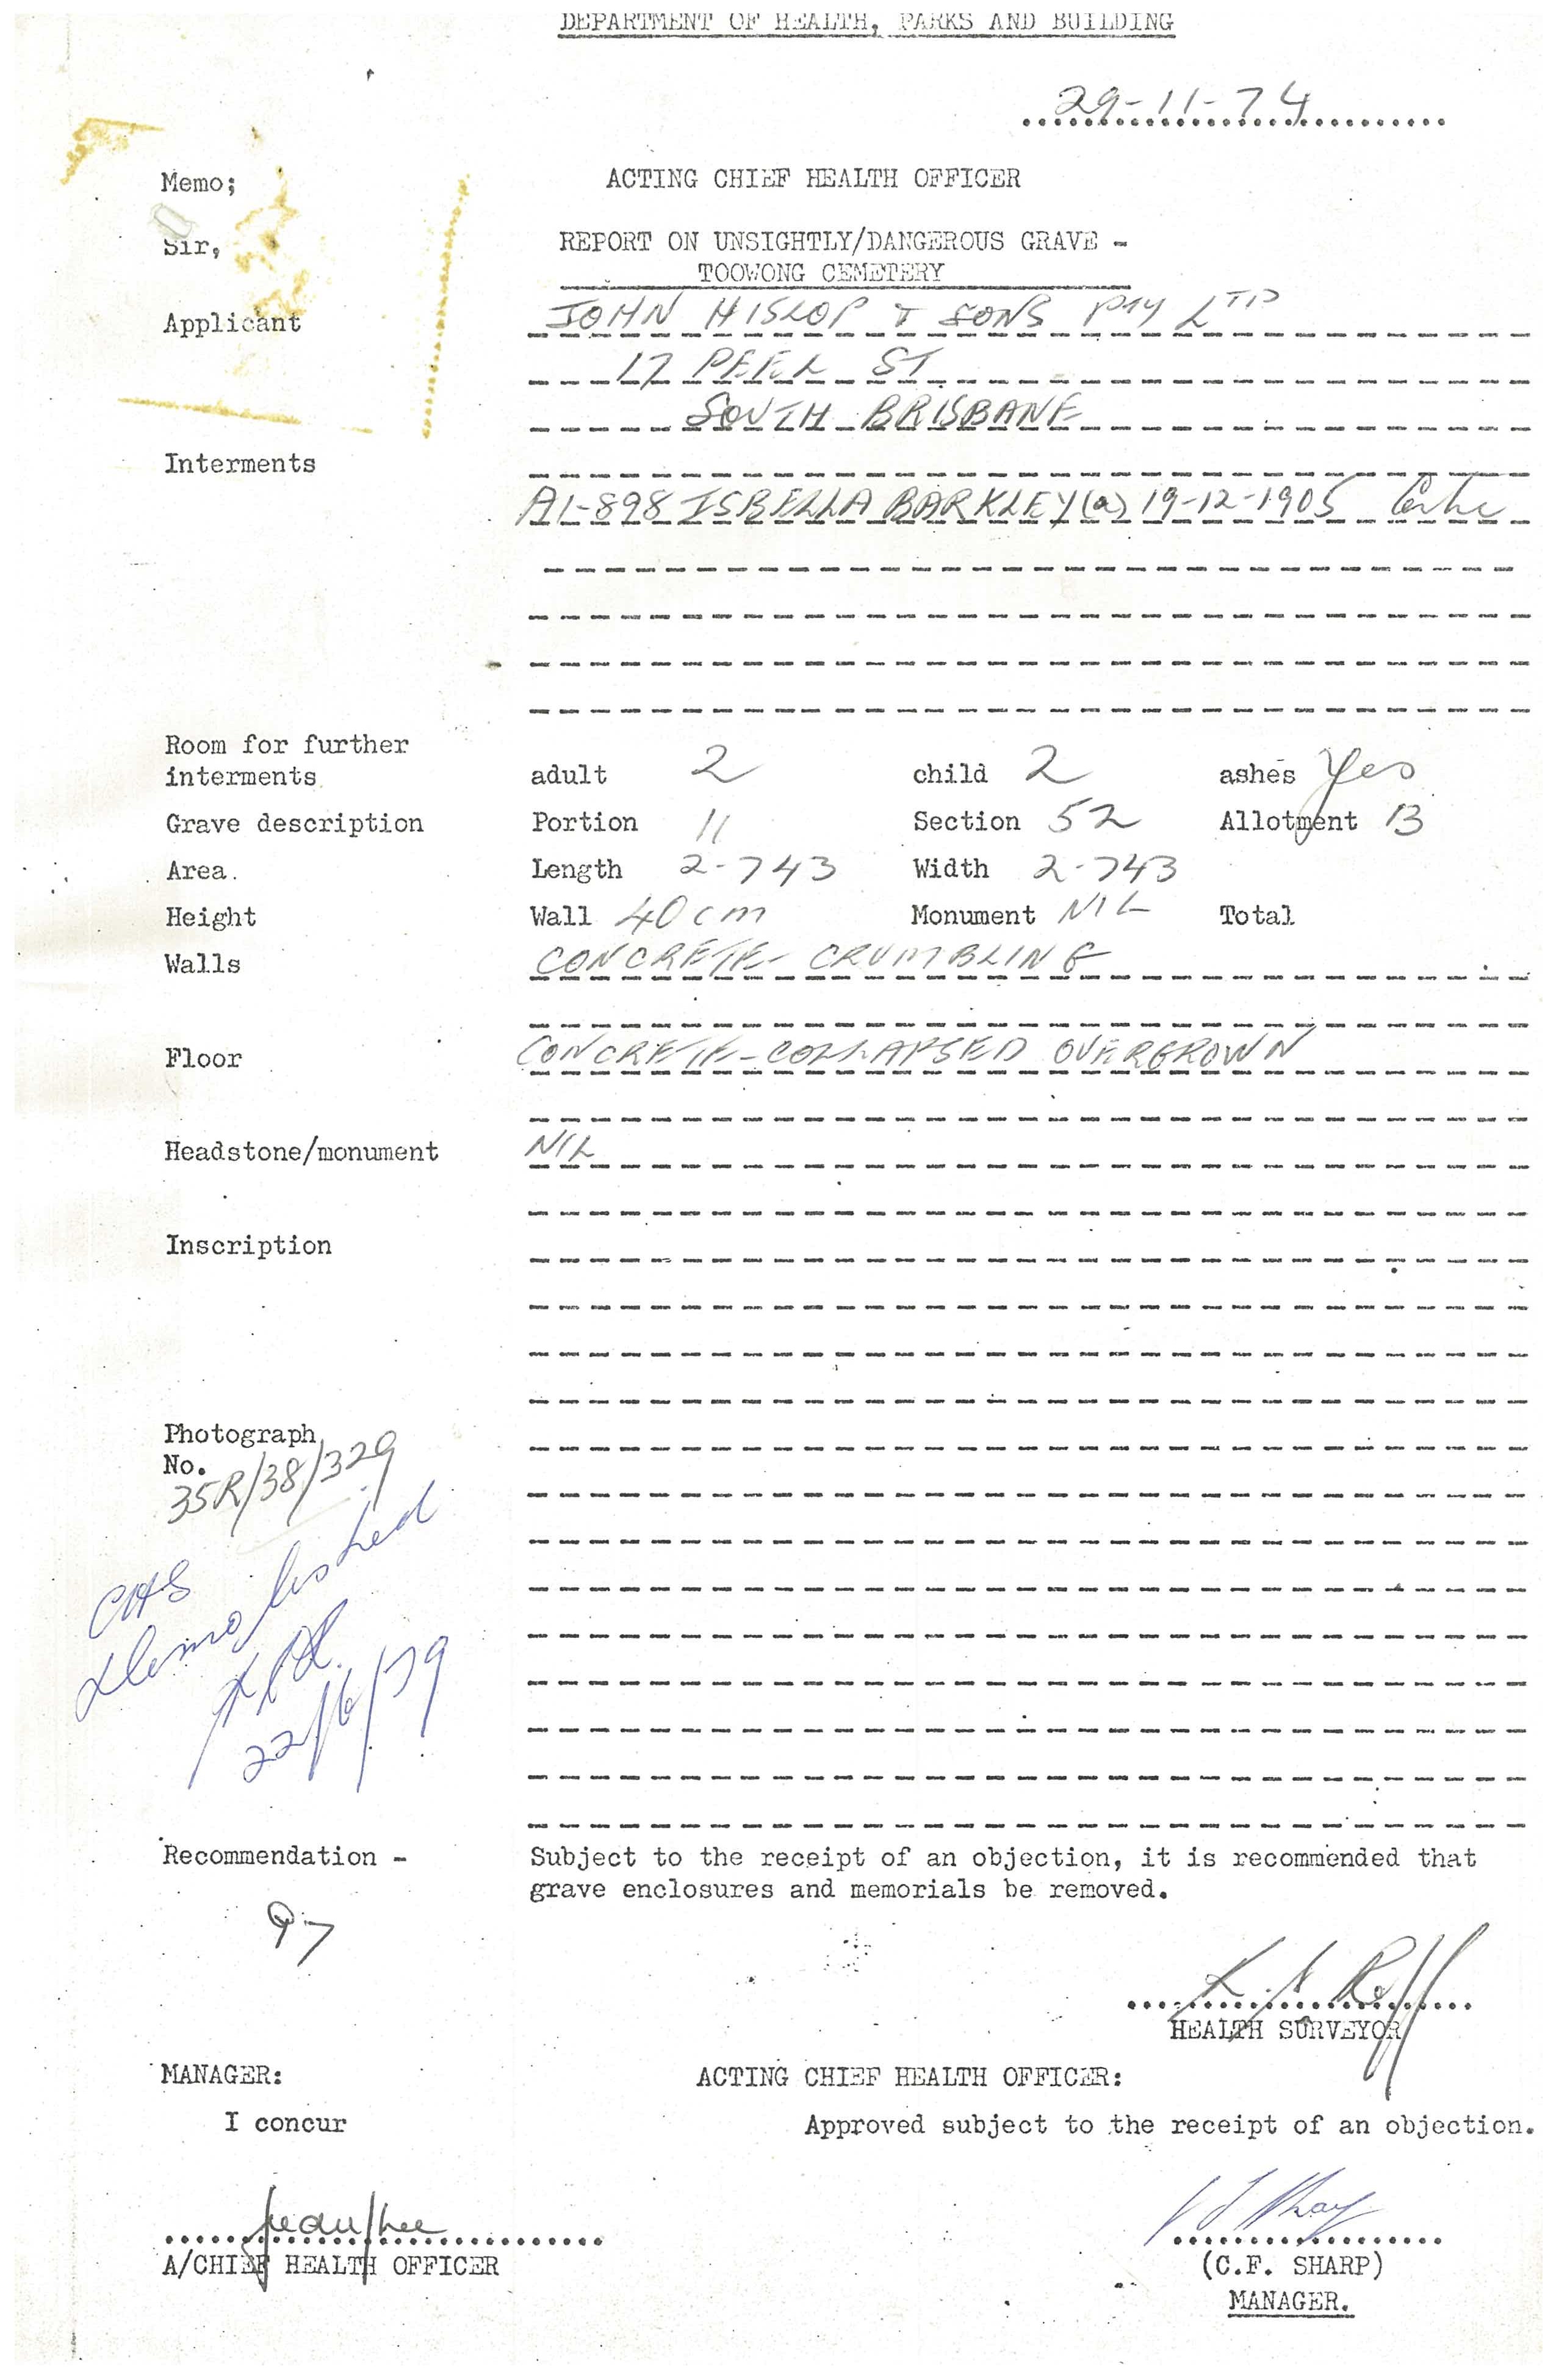 DEPARTMENT OF HEALTH, PARKS AND BUILDING
29-11-74
Memo; ACTING CHIEF HEALTH OFFICER
Sir, REPORT ON UNSIGHTLY/DANGEROUS GRAVE -
TOOWONG CEMETERY
Applicant JOHN HISLOP & SONS PTY LTD
17 PEEL ST
SOUTH BRISBANE
Interments
A1-898 ISBELLA BARKLEY (a) 19-12-1905
Room for further
interments adult 2 child 2 ashes Yes
Grave description Portion 11 Section 52 Allotment 13
Area. Length 2-743 Width 2-743
Height Wall 40cm Monument NIL Total
Walls CONCRETE- CRUMBLING
Floor CONCRETE-COLLAPSED OVERGROWN
Headstone/monument NIL
Inscription
Photograph
No.
35R/38/329
demolished
22/6/79
Recommendation - Subject to the receipt of an objection, it is recommended that
grave enclosures and memorials be removed.
HEALTH SURVEYOR
MANAGER: ACTING CHIEF HEALTH OFFICER:
I concur Approved subject to the receipt of an objection.
A/CHIEF HEALTH OFFICER (C.F. SHARP)
MANAGER.